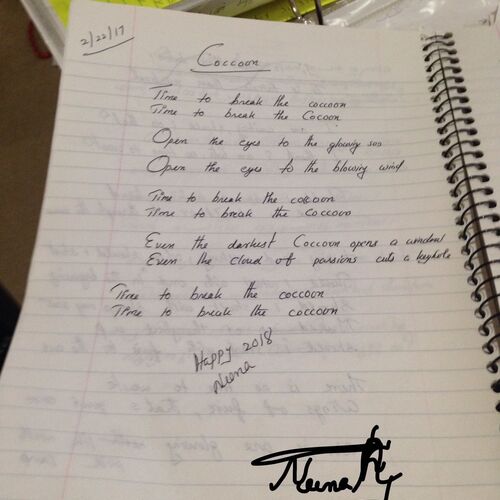 2/22/17
Coccoon
Time to break the coccoon
Time to break the Cocoon
Open the eyes to the glowing sun
Open the eyes to the blowing wind
Time to break the coccoon
Time to break the Coccoon
Even the darkest Coccoon opens a window
Even the cloud of passions cuts a keyhole
Time to break the coccoon
Time to break the coccoon
Happy 2018
Neena
Neena